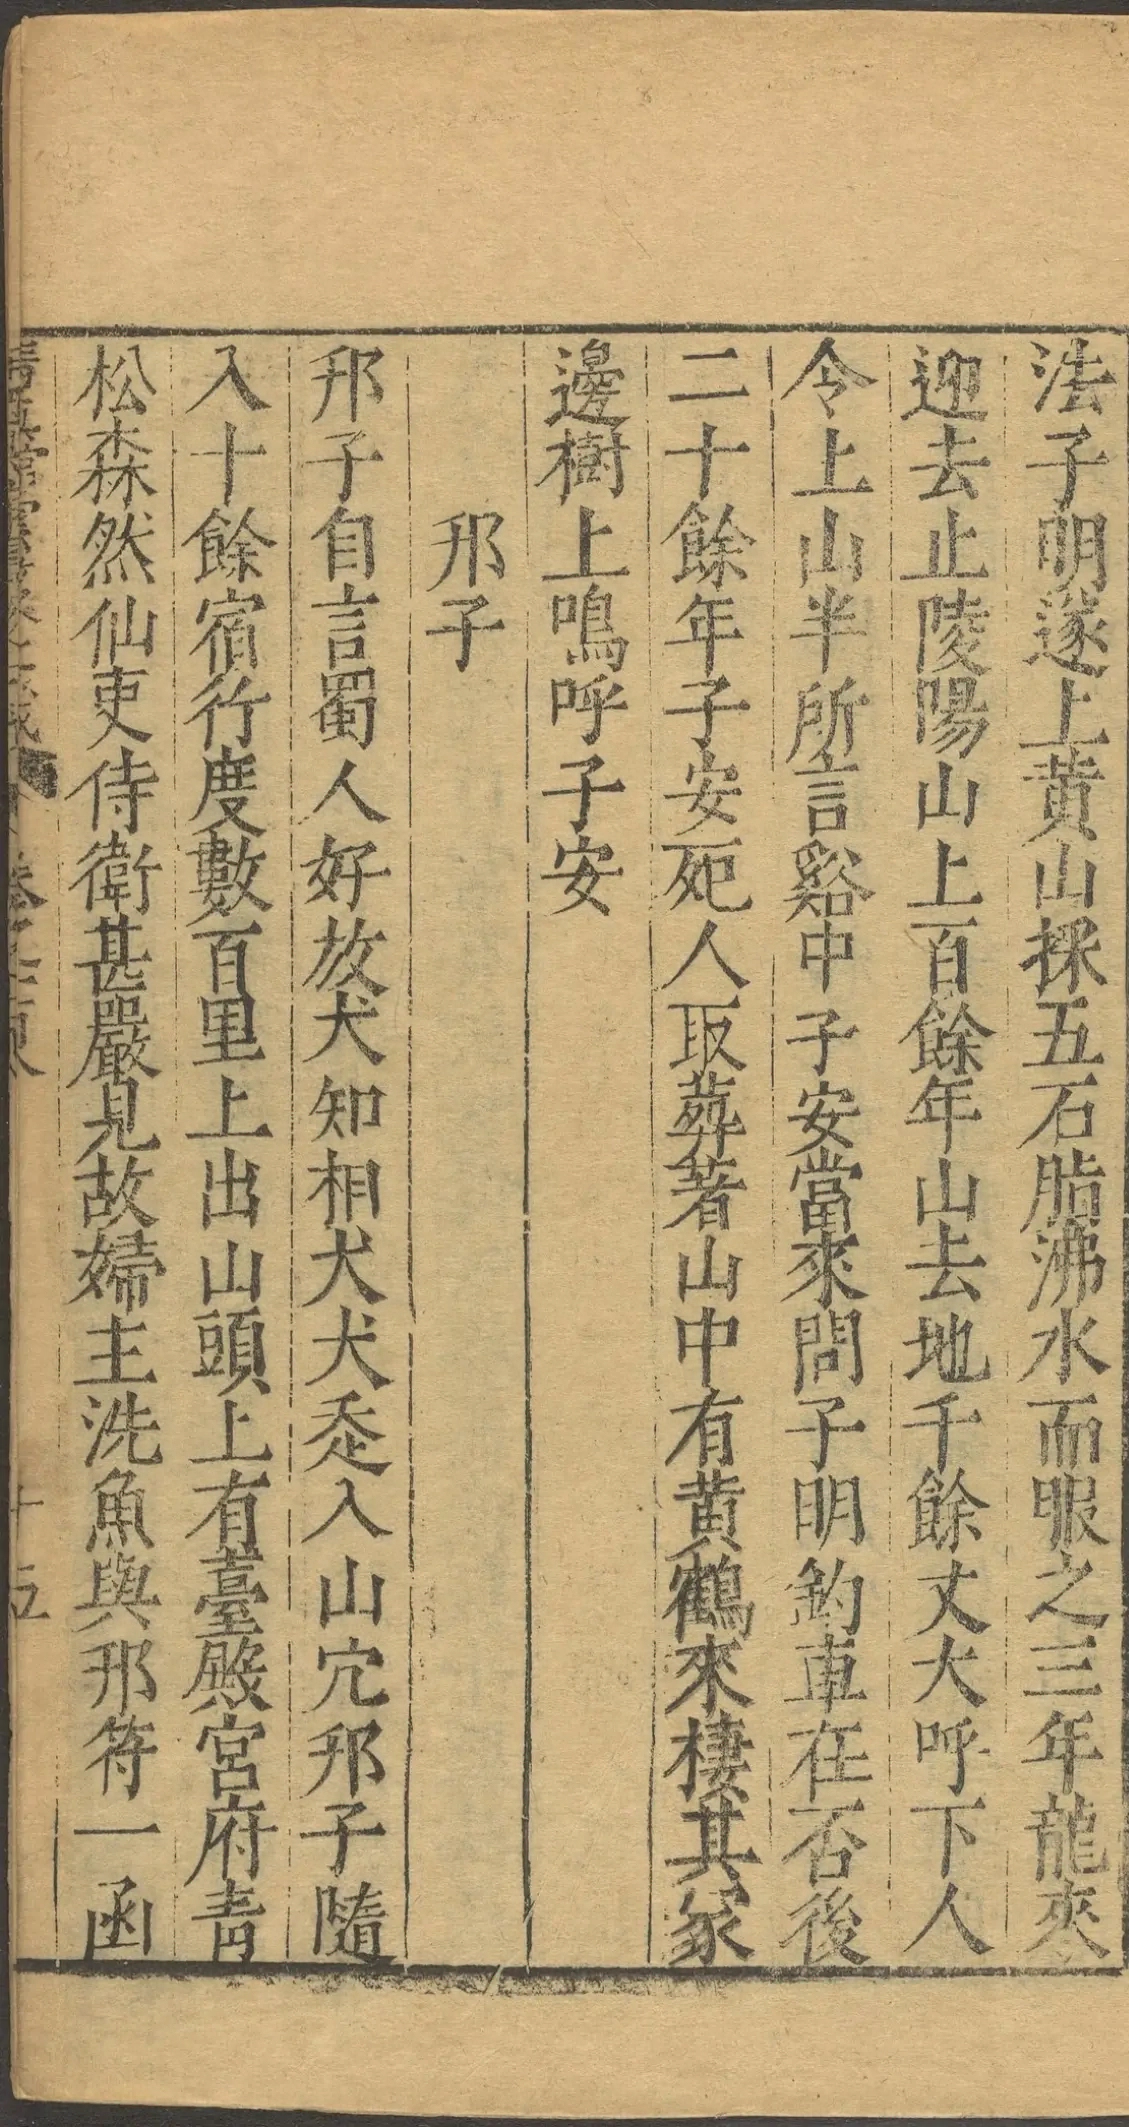 法子明遂上黄山採五石脂沸水而服之三年龍來
迎去止陵陽山上百餘年山去地千餘丈大呼下人
令上山半所言谿中子安當來問子明釣車在否後
二十餘年子安死人取葬著山中有黄鶴來棲其冢
邊樹上鳴呼子安
邘子
邘子自言蜀人好放犬知相犬犬走入山穴邘子隨
入十餘宿行度數百里上出山頭上有臺殿宮府青
松森然仙吏侍衛甚嚴見故婦主洗魚與邘符一函
十五